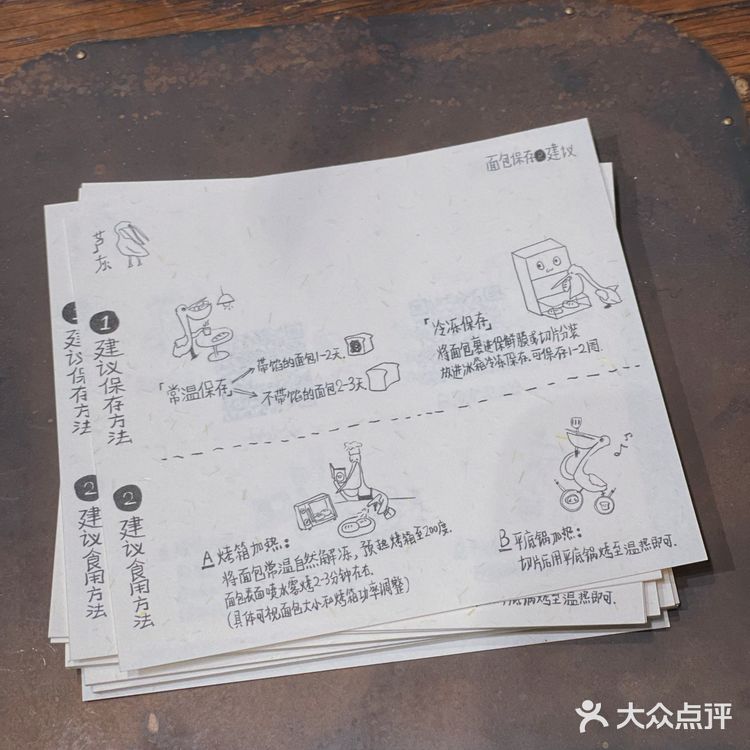 面包保存建议
芦东
1 建议保存方法
「常温保存」
带馅的面包1-2天.
不带馅的面包2-3天.
「冷冻保存」
将面包裹进保鲜膜或切片分装
放进冰箱冷冻保存.可保存1-2周.
2 建议食用方法
A 烤箱加热:
将面包常温自然解冻, 预热烤箱至200度.
面包表面喷水雾烤2-3分钟左右.
(具体可视面包大小和烤箱功率调整)
B 平底锅加热:
切片后用平底锅烤至温热即可.
1 建议保存方法
2 建议食用方法
平底锅烤至温热即可.
大众点评